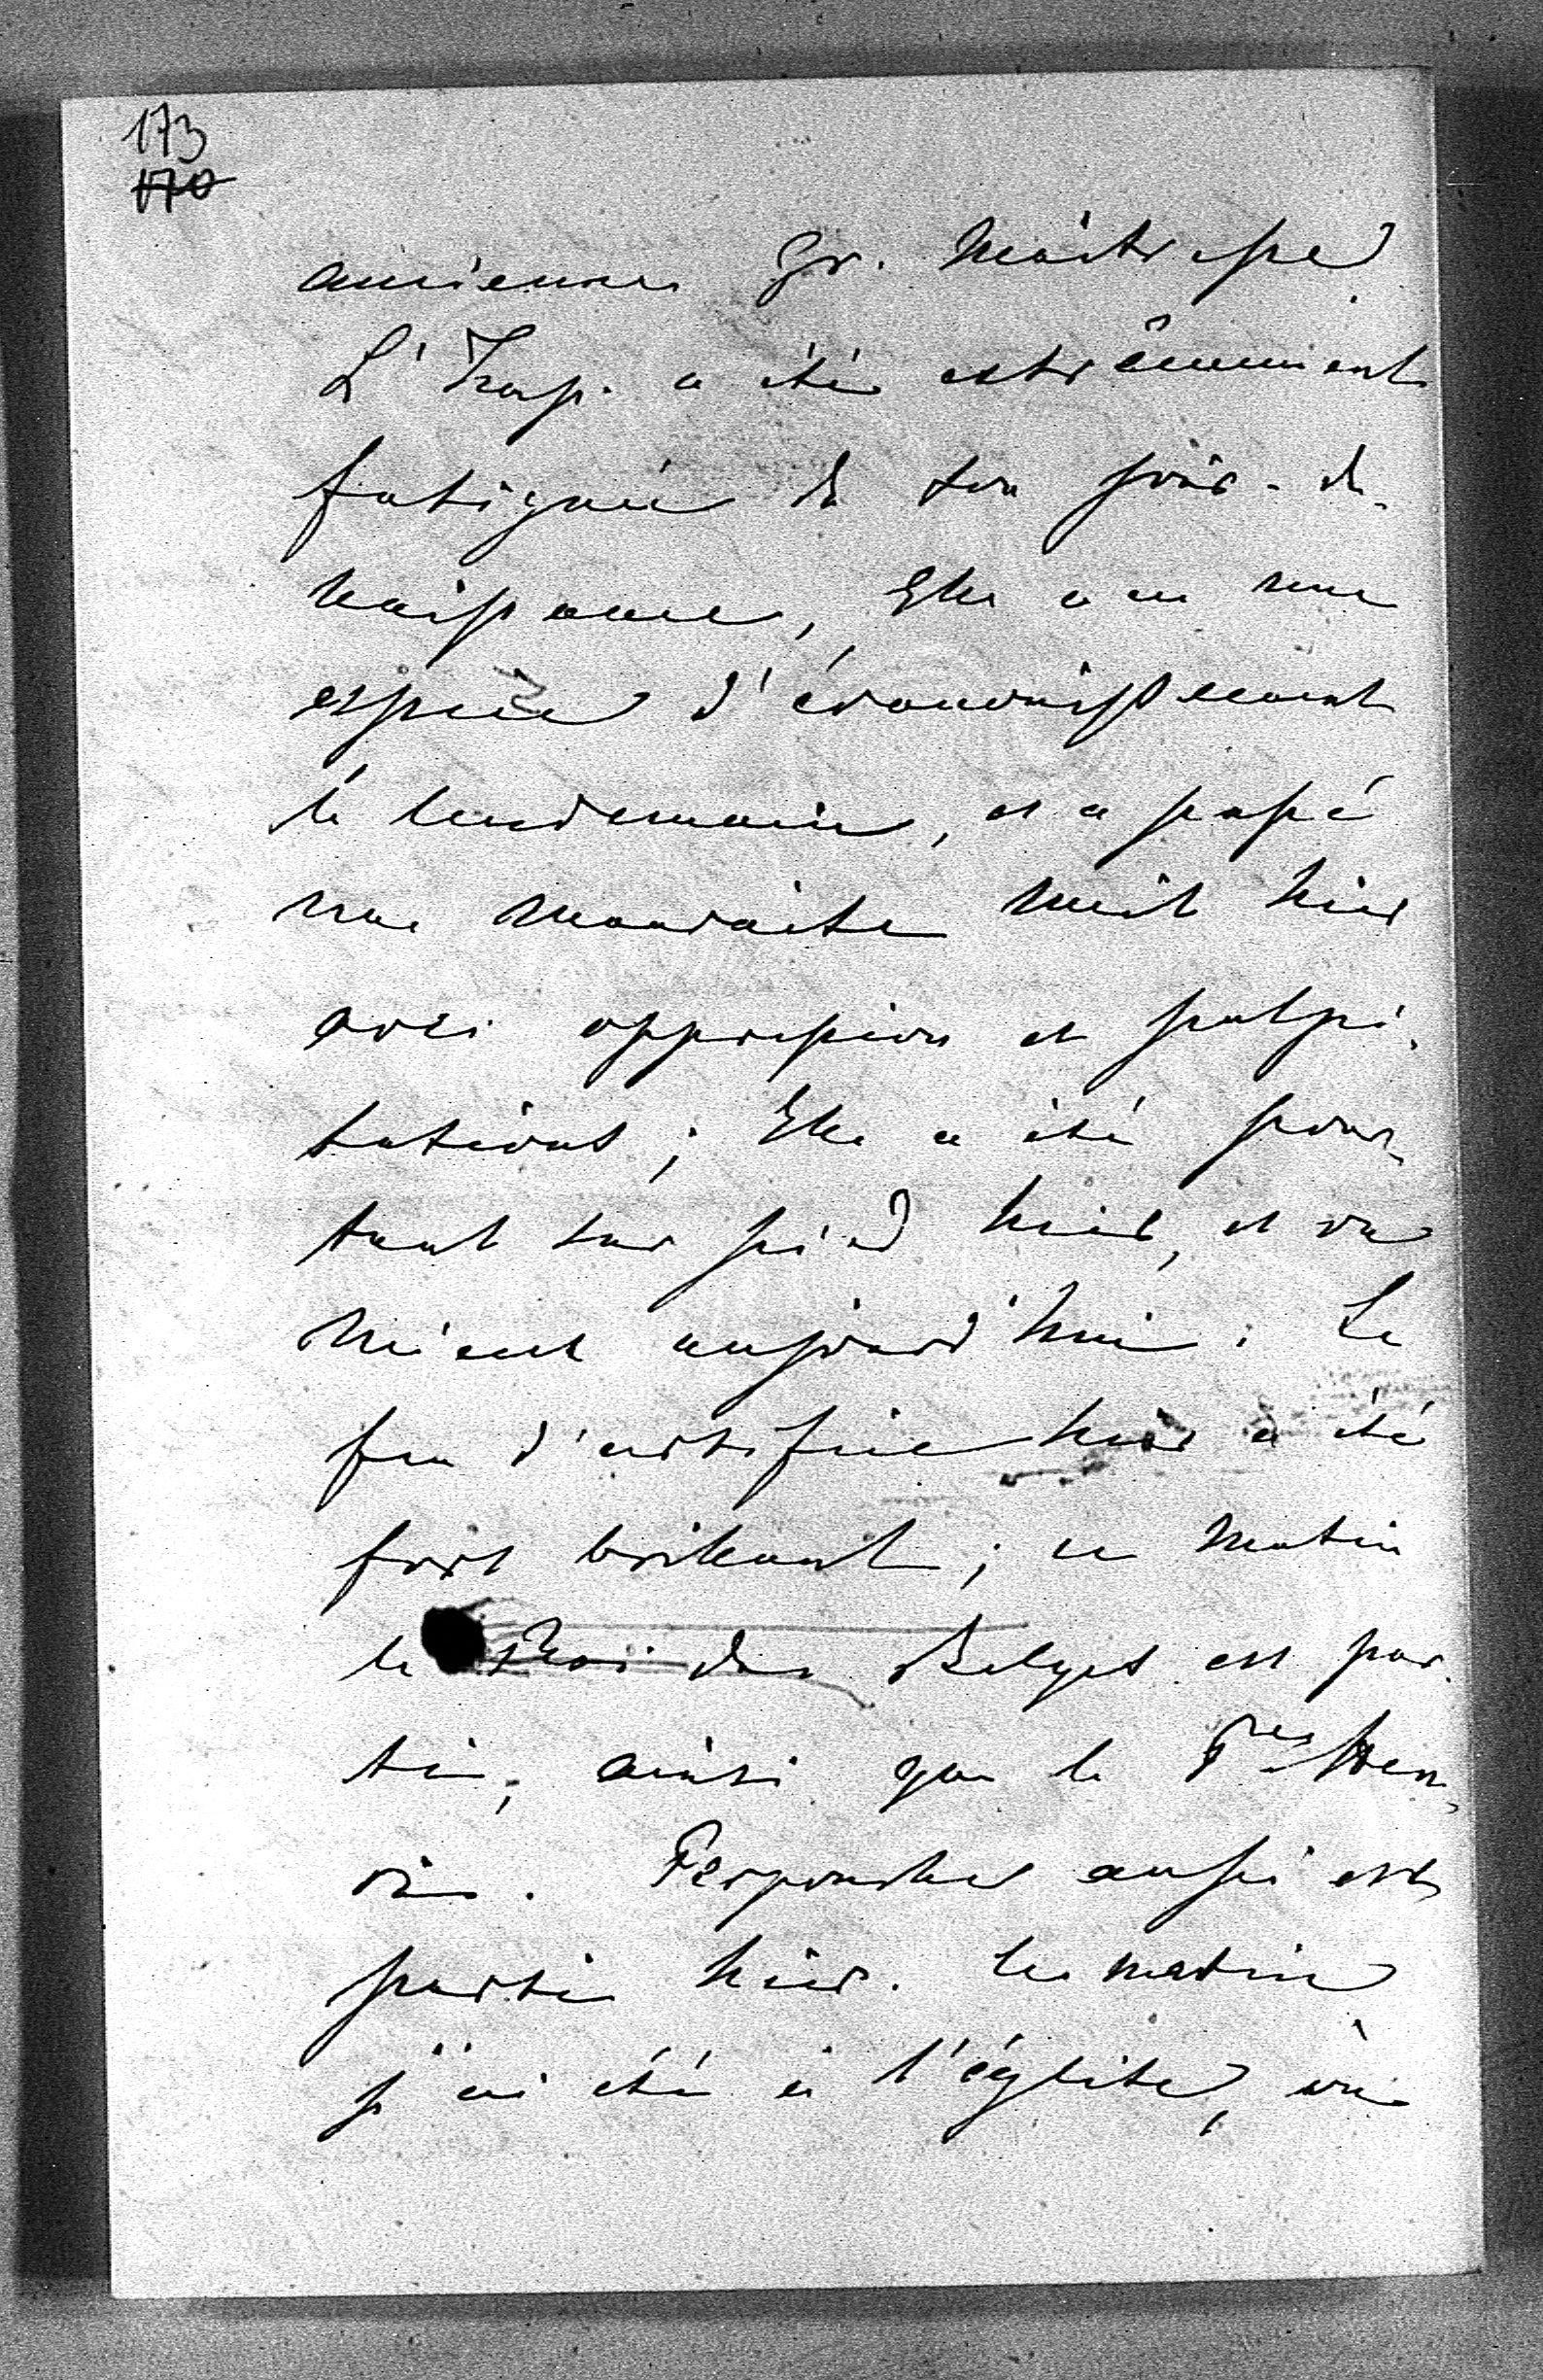 173
170
ancienne Gr. Maîtresse
L'Imp. a été extrêmement
fatiguée de son jour-de-
naissance, Elle a eu une
espèce d'évanouissement
le lendemain, et a passé
une mauvaise nuit hier
avec oppression et palpi-
tations; Elle a été pour-
tant sur pied hier, et va
mieux aujourd'hui. Le
feu d'artifice hier a été
fort brillant; ce matin
le Roi des Belges est par-
ti, ainsi que le Pce Hen-
ri. Perponcher aussi est
parti hier. Ce matin
j'ai été à l'église, où